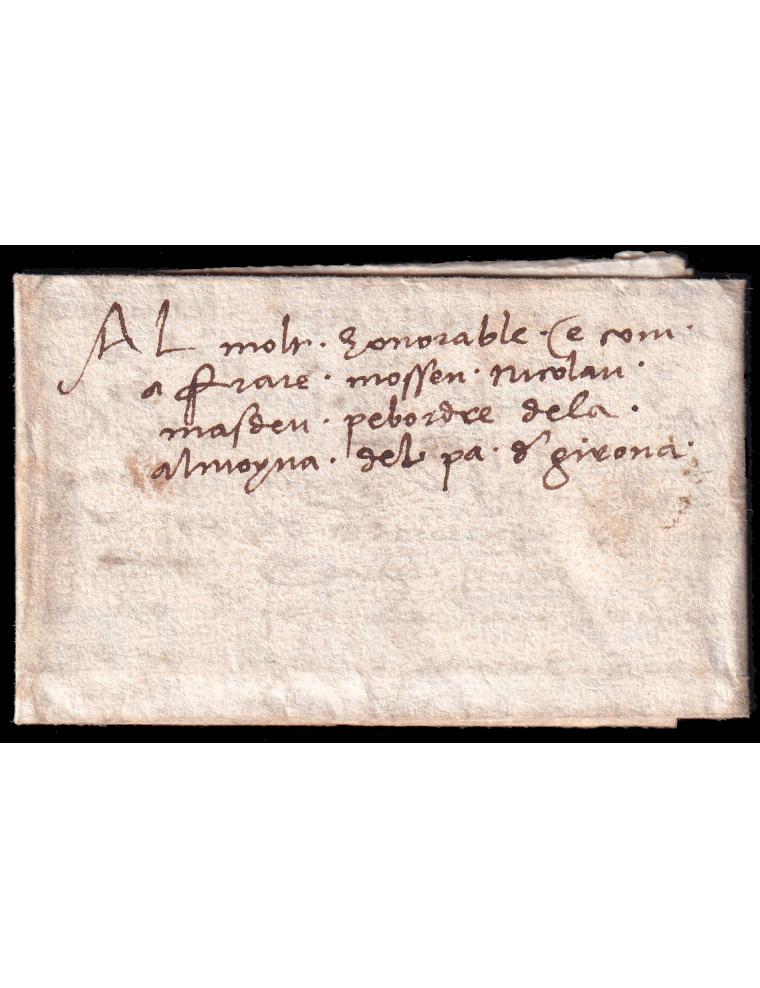 AL molt · honorable · (e com ·
a ffrare · mossen · nicolau ·
masdeu · pebordre dela ·
almoyna · del pa · d' girona ·